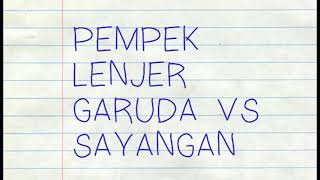 PEMPEK
LENJER
GARUDA VS
SAYANGAN